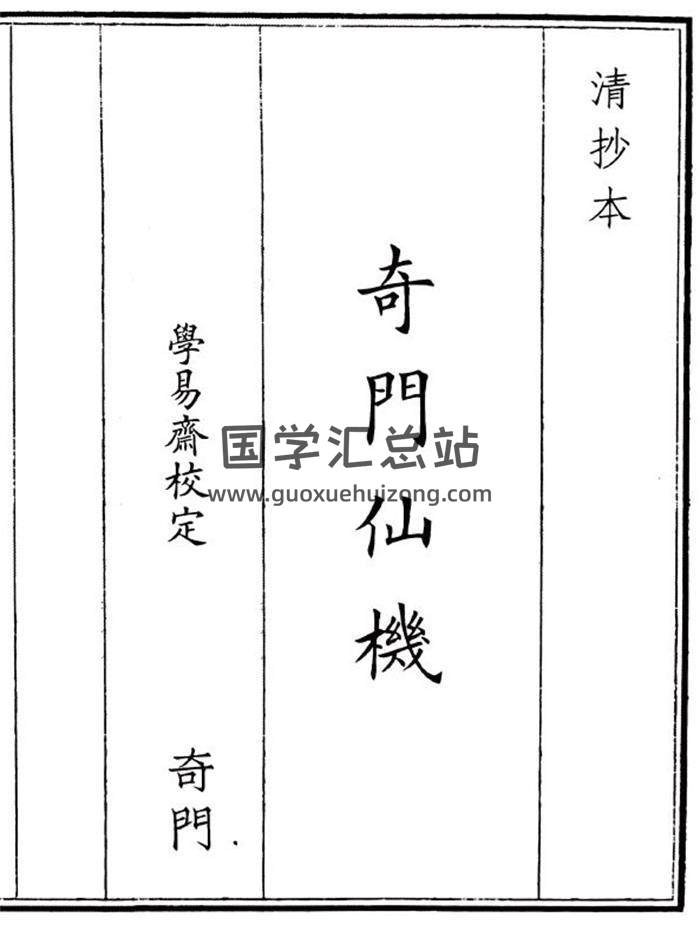 清抄本
奇門仙機
學易齋校定
奇門
国学汇总站
www.guoxuehuizong.com